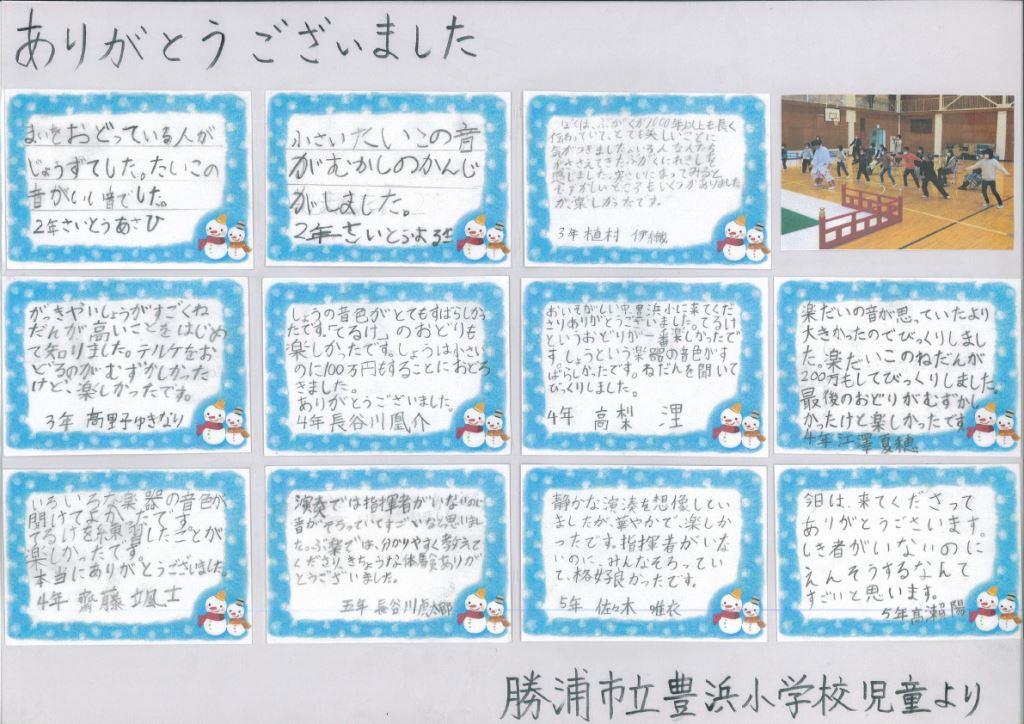 ありがとうございました
まいをおどっている人が
じょうずでした。たいこの
音がいい音でした。
2年さいとうあさひ
小さいたいこの音
がむかしのかんじ
がしました。
2年さいとう
ぼくは、ぶがくが1000年以上も長く
伝わっていて、とても美しいことに
気がつきました。いろんな人たち
がささえてきたぶがくにれきしを
感じました。実さいにまってみると
むずかしいところもいくつかありました
が、楽しかったです。
3年 植村 伊織
がっきやいしょうがすごくね
だんが高いことをはじめ
て知りました。テルケをお
どるのがむずかしかった
けど、楽しかったです。
3年 髙里子ゆきなり
しょうの音色がとてもすばらしかっ
たです。「てるけ」のおどりも
楽しかったです。しょうは小さい
のに100万円もすることにおどろ
きました。
ありがとうございました。
4年長谷川凰介
おいそがしい中、豊浜小に来てくだ
さりありがとうございました。てるけ
というおどりが一番楽しかったで
す。しょうという楽器の音色がす
ばらしかったです。ねだんを聞いて
びっくりしました。
4年 高梨 浬
楽だいの音が思っていたより
大きかったのでびっくりしまし
た。楽だいこのねだんが
200万もしてびっくりしました。
最後のおどりがむずかし
かったけと楽しかったです
4年江澤夏穂
いろいろな楽器の音色が
聞けてよかったです。
てるけを練習したことが
楽しかったです。
本当にありがとうございました。
4年 齊藤 颯士
演奏では指揮者がいないのに
音がそろっていてすごいなと思いまし
た。ぶ楽では、分かりやすく教えて
くださり、きちょうな体験ありが
とうございました。
五年 長谷川虎太郎
静かな演奏を想像してい
ましたが、華やかで、楽しか
ったです。指揮者がいな
いのに、みんなそろってい
て、格好良かったです。
5年 佐々木 唯衣
今日は、来てくださって
ありがとうございます。
しき者がいないのに
えんそうするなんて
すごいと思います。
5年髙瀨陽
勝浦市立豊浜小学校児童より